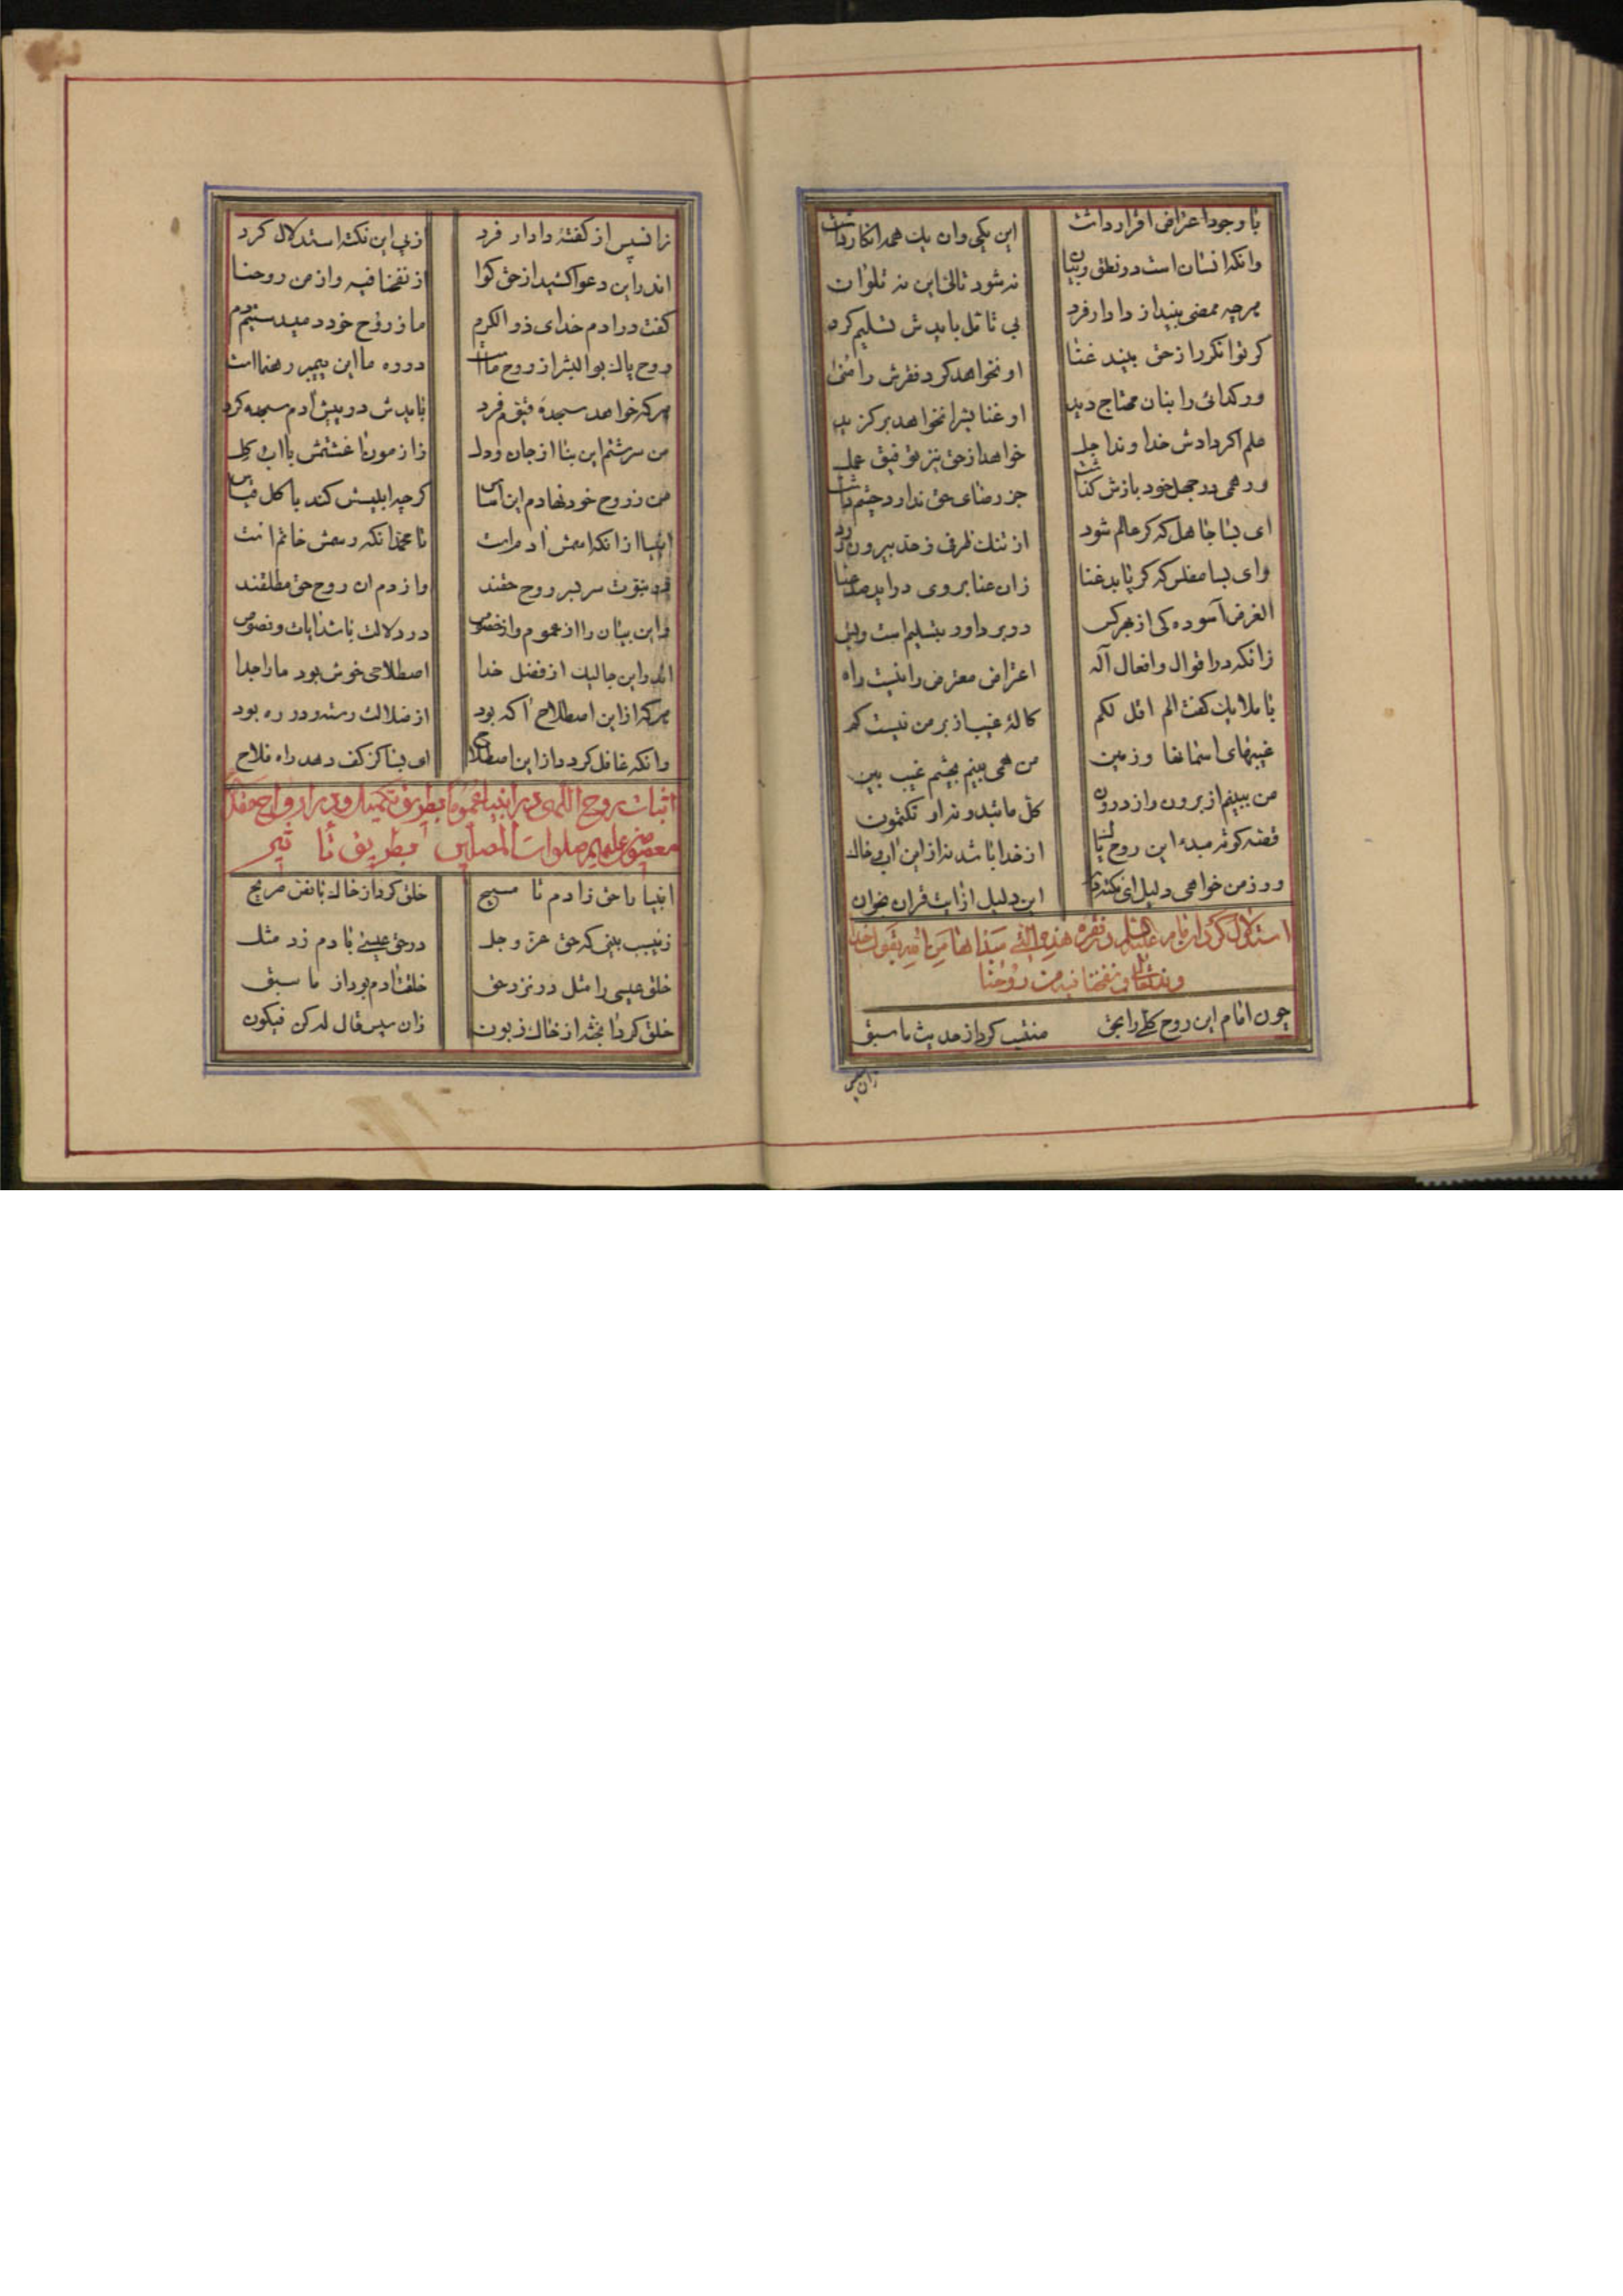 با وجود اعتراض اقرار داشت این یکی وان یک همه انکار داشت
وانکه انسان است در نطق و بیان نه شود تالی این نه تلو ان
هرچه ممضی بیند از دادار فرد بی تامل بایدش تسلیم کرد
کر توانکر را ز حق بیند غنا او نخواهد کرد فقرش را
ور کدائی را بنان محتاج دید او غنایش را نخواهد برکزید
علم اکر دادش خداوند اجل خواهد از حق نیز توفیق عمل
ور همی در جهل خود بازش کذاشت جز رضای حق ندارد چشم داشت
ای بسا جاهل که کر عالم شود از تنک ظرفی ز حد بیرون رود
وای بسا مفلس که کر یابد غنا زان غنا بر وی دراید صد عنا
الغرض آسوده کی از هر کس در بر داور بتسلیم است و بس
زانکه در اقوال و افعال آله اعتراض معترض را نیست راه
با ملایک کفت الم اقل لکم کاله غیب از بر من نیست کم
غیبهای اسمانها و زمین من همی بینم بچشم غیب بین
من ببینم از برون راز درون کل ما تبدون او تکتمون
قصه کوته مبدء این روح پاک از خدا باشد نه از این اب و خاک
ور ز من خواهی دلیل ای نکته دان این دلیل از ایت قران بخوان
استدلال کردن امام علیه السلام در فقره هذه التی مبداها من الله بقول خدا
وند تعالی و نفخنا فیه من روحنا
چون امام این روح کلی را بحق منتسب کرد از حدیث ما سبق
زان سپس
زان سپس از کفته دادار فرد از پی این نکته استدلال کرد
اندر این دعوا کشید از حق کوا از نفخنا فیه و از من روحنا
کفت در ادم خدای ذو الکرم ما ز روح خود دمیدستیم دم
روح پاک بو البشر از روح ماست در ره ما این پیمبر رهنما است
هرکه خواهد سجده قیوم فرد بایدش در پیش آدم سجده کرد
من سرشتم این بنا از جان و دل زازمون اغشتمش با اب و کل
من ز روح خود نهادم این اساس کرچه ابلیسش کند با کل قیاس
انبیا از انکه اسمش ادم است تا محمد انکه اسمش خاتم است
در نبوت سر بسر روح حقند واز دم ان روح حق مطلقند
واین بیان را از عموم و از خصوص در دلالت باشد ایات و نصوص
اندر این جا لیک از فضل خدا اصطلاحی خوش بود ما را جدا
هرکه از این اصطلاح اکه بود از ضلالت رسته و در ره بود
وانکه غافل کردد از این اصطلاح ای بسا کز کف دهد راه فلاح
اثبات روح اللهی در انبیا عموما بطریق تکمیل و در ارواح مقدسه
معصومین علیهم صلوات المصلین بطریق تاثیر
انبیا را حق ز ادم تا مسیح خلق کرد از خاک با نص صریح
زین سبب بینی که حق عز و جل در حق عیسی بادم زد مثل
خلق عیسی را مثل در نزد حق خلقت ادم بود از ما سبق
خلق کرد ان جثه از خاک زبون زان سپس قال له کن فیکون